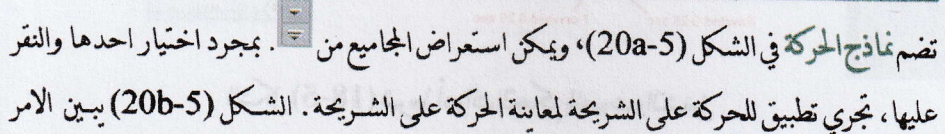 تضم نماذج الحركة في الشكل (20a-5)، ويمكن استعراض المجاميع من . بمجرد اختيار احدها والنقر
عليها، تجري تطبيق للحركة على الشريحة لمعاينة الحركة على الشريحة. الشكل (20b-5) يبين الامر